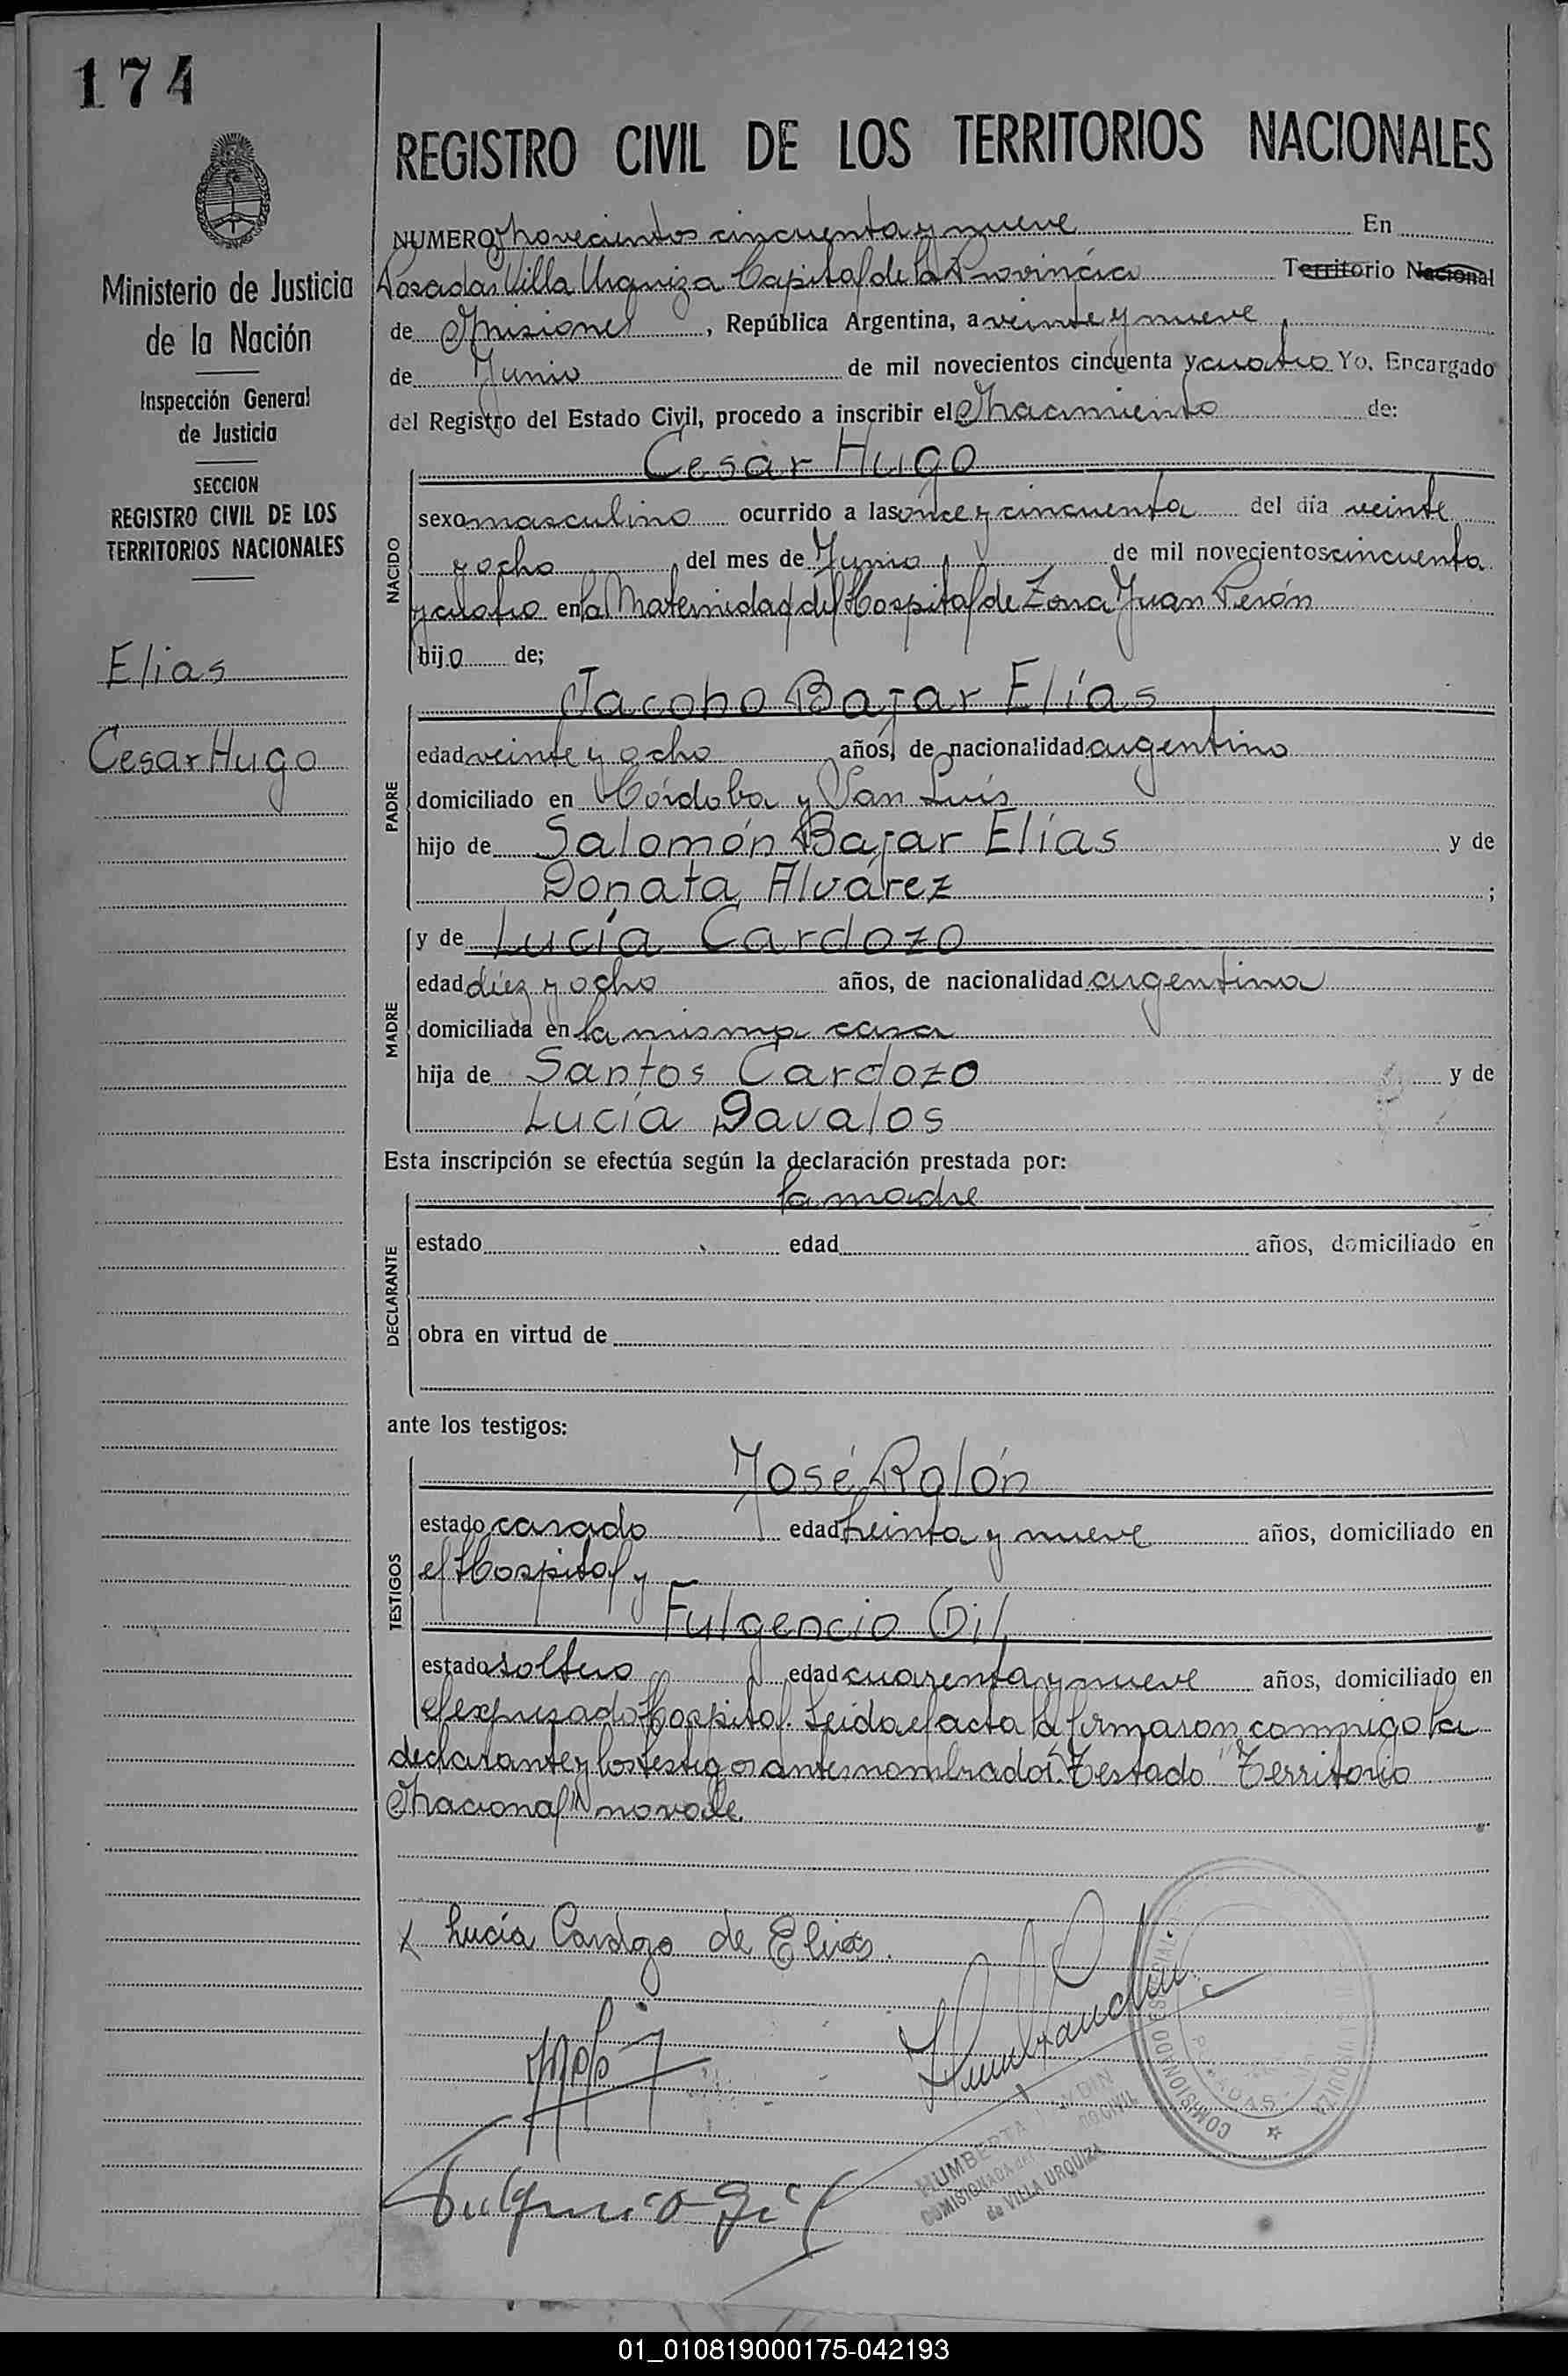 174
REGISTRO CIVIL DE LOS TERRITORIOS NACIONALES
Ministerio de Justicia
de la Nación
Inspección General
de Justicia
SECCION
REGISTRO CIVIL DE LOS
TERRITORIOS NACIONALES
Elias
Cesar Hugo
NUMERO Novecientos cincuenta y nueve En
Posadas Villa Urquiza Capital de la Provincia Territorio Nacional
de Misiones, República Argentina, a veinte y nueve
de Junio de mil novecientos cincuenta y cuatro Yo, Encargado
del Registro del Estado Civil, procedo a inscribir el Nacimiento de:
NACIDO
Cesar Hugo
sexo masculino ocurrido a las once y cincuenta del día veinte
y ocho del mes de Junio de mil novecientos cincuenta
y cuatro en la Maternidad del Hospital de Zona Juan Perón
hijo de;
PADRE
Jacobo Bajar Elías
edad veinte y ocho años, de nacionalidad argentino
domiciliado en Córdoba y San Luis
hijo de Salomón Bajar Elías y de
Donata Alvárez ;
MADRE
y de Lucía Cardozo
edad diez y ocho años, de nacionalidad argentina
domiciliada en la misma casa
hija de Santos Cardozo y de
Lucía Davalos
Esta inscripción se efectúa según la declaración prestada por:
DECLARANTE
la madre
estado edad años, domiciliado en
obra en virtud de
ante los testigos:
TESTIGOS
José Rolón
estado casado edad treinta y nueve años, domiciliado en
el Hospital y
Fulgencio Gil
estado soltero edad cuarenta y nueve años, domiciliado en
el expresado Hospital. Leida el acta la firmaron conmigo la
declarante y los testigos antes nombrados. Testado "Territorio
Nacional" no vale.
x Lucía Cardozo de Elias.
Fulgencio Gil
HUMBERTA
COMISIONADA DEL CIVIL
de VILLA URQUIZA
COMISIONADO ESPECIAL
POSADAS
01_010819000175-042193